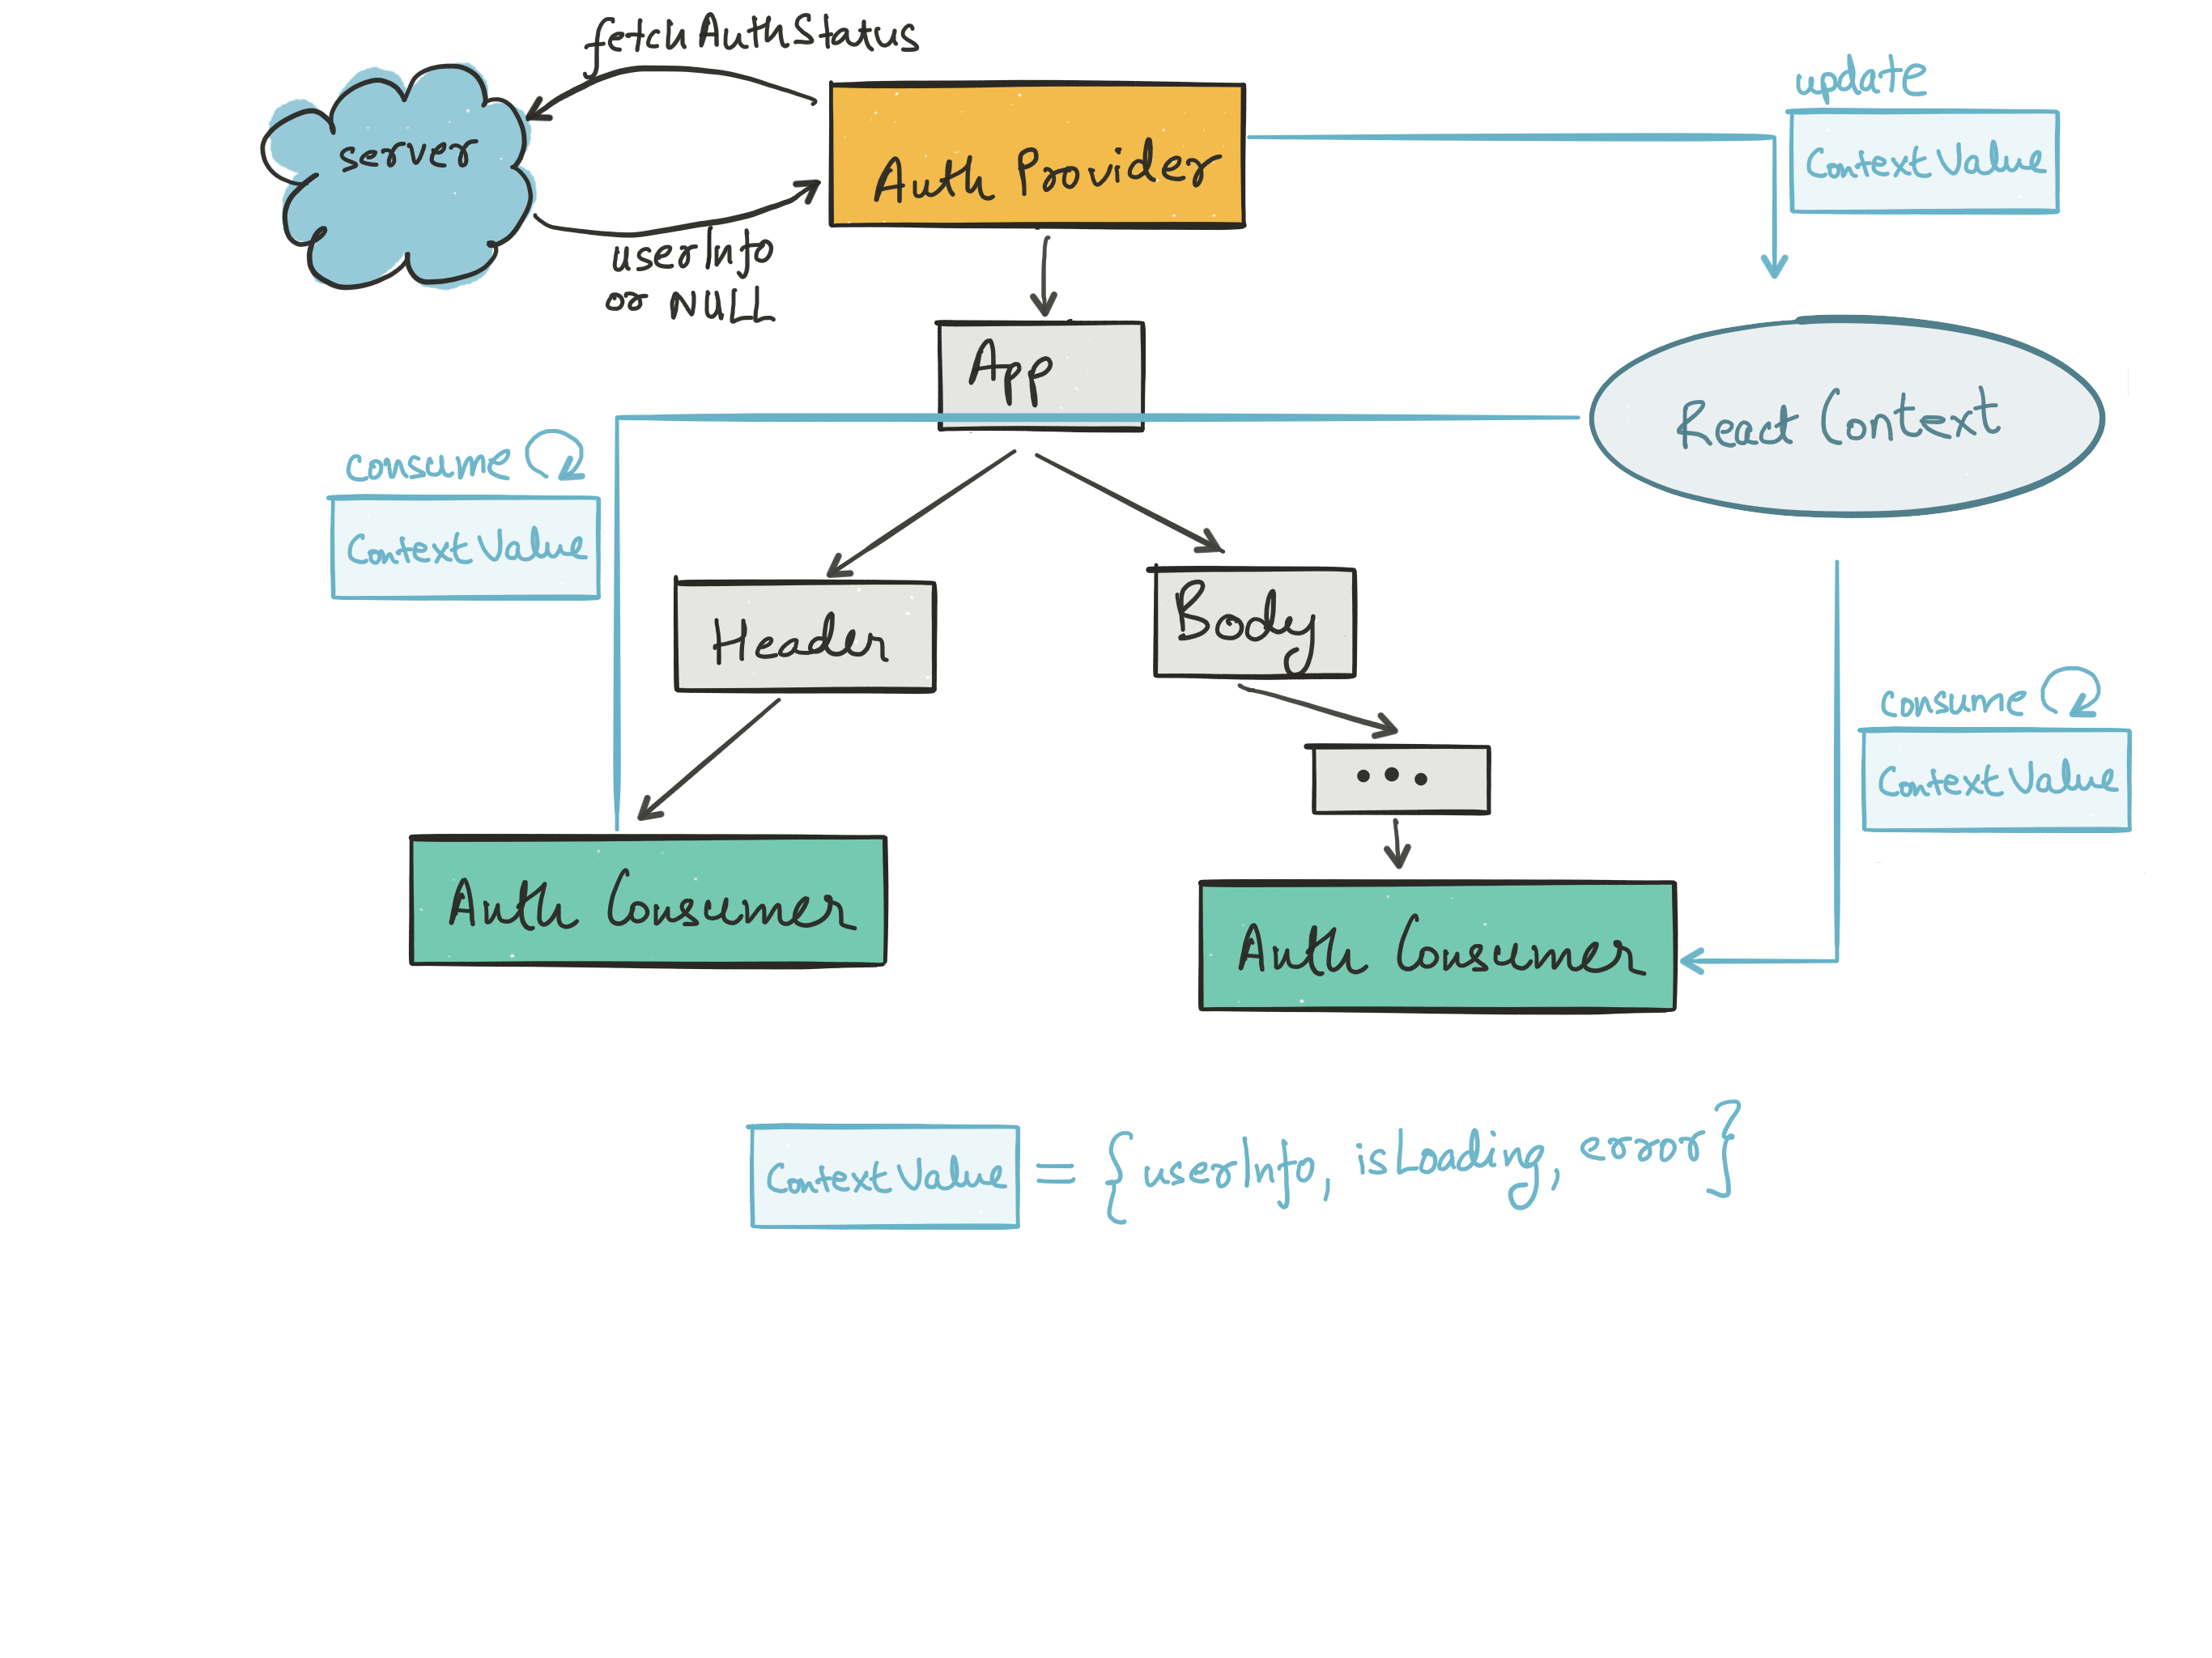 fetchAuthStatus
server
Auth Provider
userInfo
or NULL
update
Context Value
App
React Context
consume
Context Value
Header
Body
...
consume
Context Value
Auth Consumer
Auth Consumer
Context Value = {userInfo, isLoading, error}